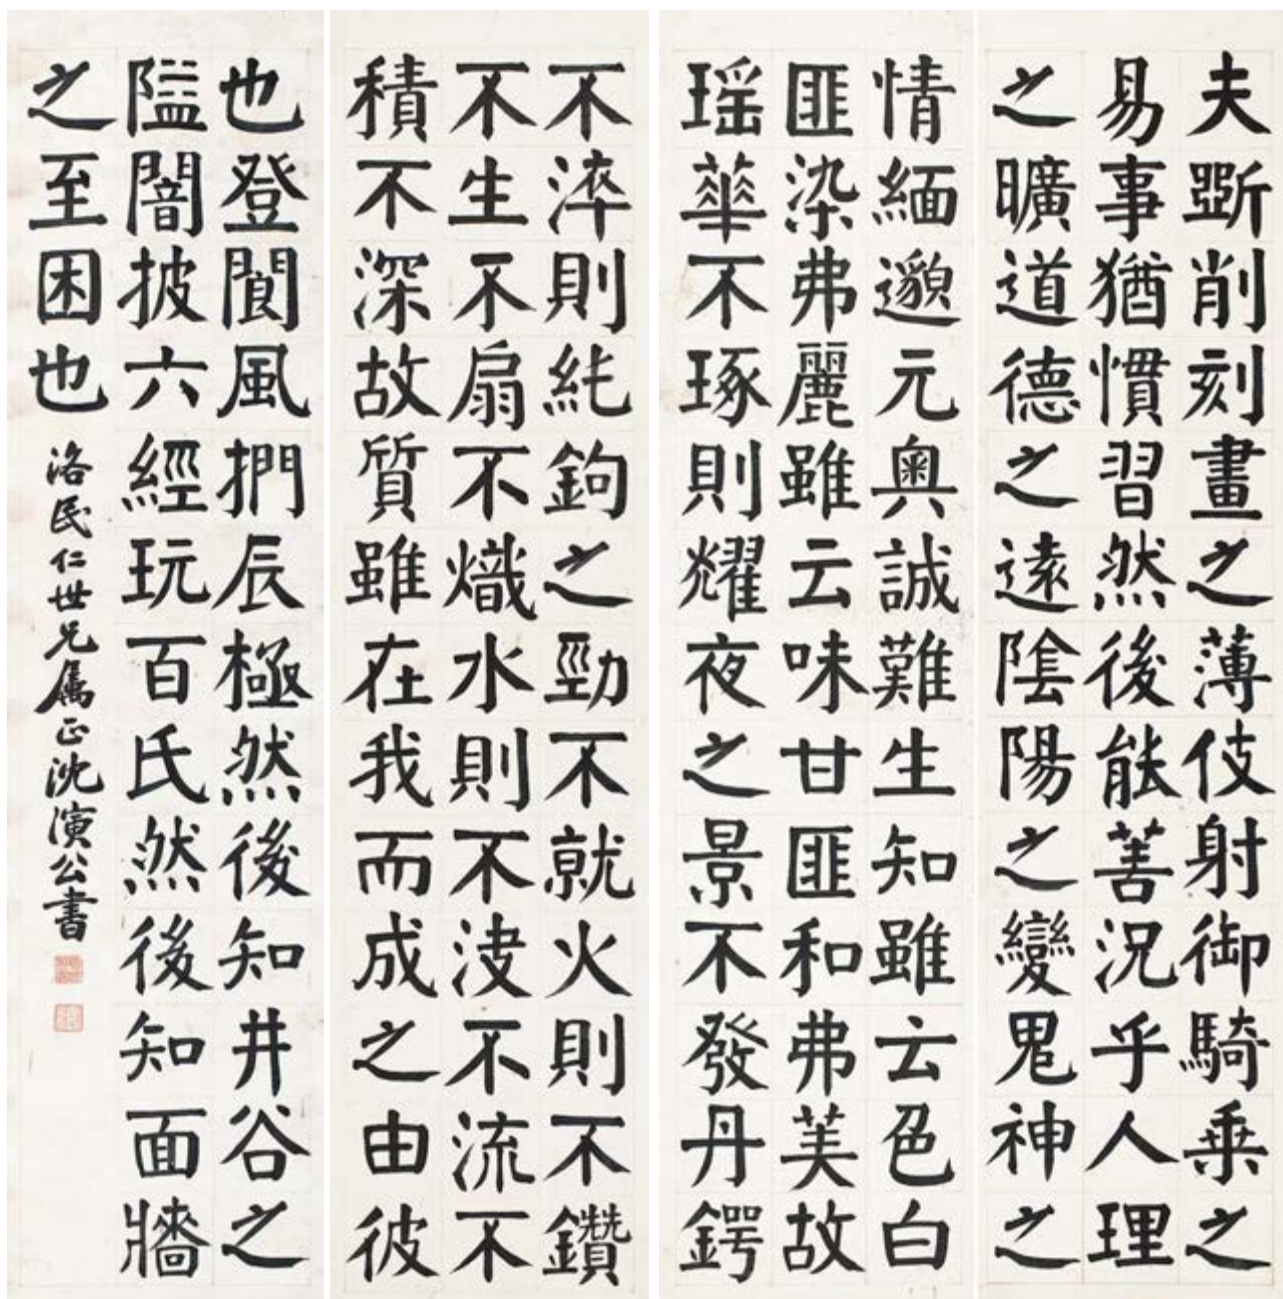 夫斲削刻畫之薄伎射御騎乗之
易事猶慣習然後能善況乎人理
之曠道德之遠陰陽之變鬼神之
情緬邈元奥誠難生知雖云色白
匪染弗麗雖云味甘匪和弗美故
瑶華不琢則耀夜之景不發丹鍔
不淬則純鉤之勁不就火則不鑽
不生不扇不熾水則不浚不流不
積不深故質雖在我而成之由彼
也登閬風捫辰極然後知井谷之
隘闇披六經玩百氏然後知面牆
之至困也
洛民仁世兄属正沈演公書